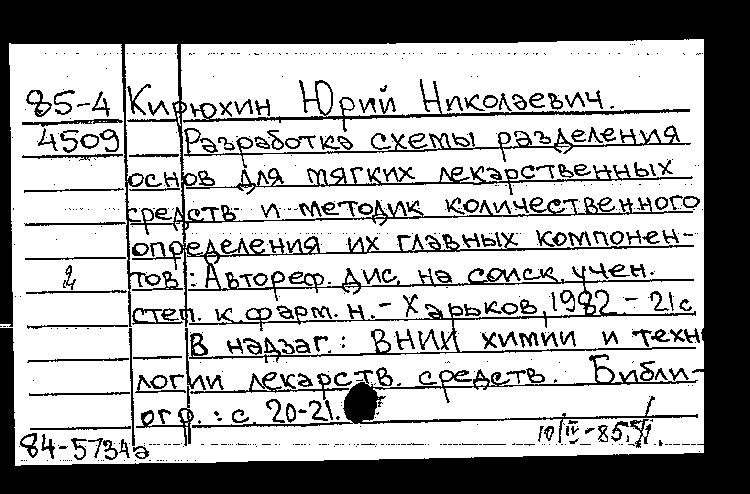 85-4 Кирюхин Юрий Николаевич.
4509 Разработка схемы разделения
основ для мягких лекарственных
средств и методик количественного
определения их главных компонен-
2 тов: Автореф. дис. на соиск. учен.
степ. к. фарм. н. - Харьков, 1982 - 21 с.
В надзаг.: ВНИИ химии и техно
логии лекарств. средств. Библи-
огр.: с. 20-21.
84-5734а 10/IV-85.